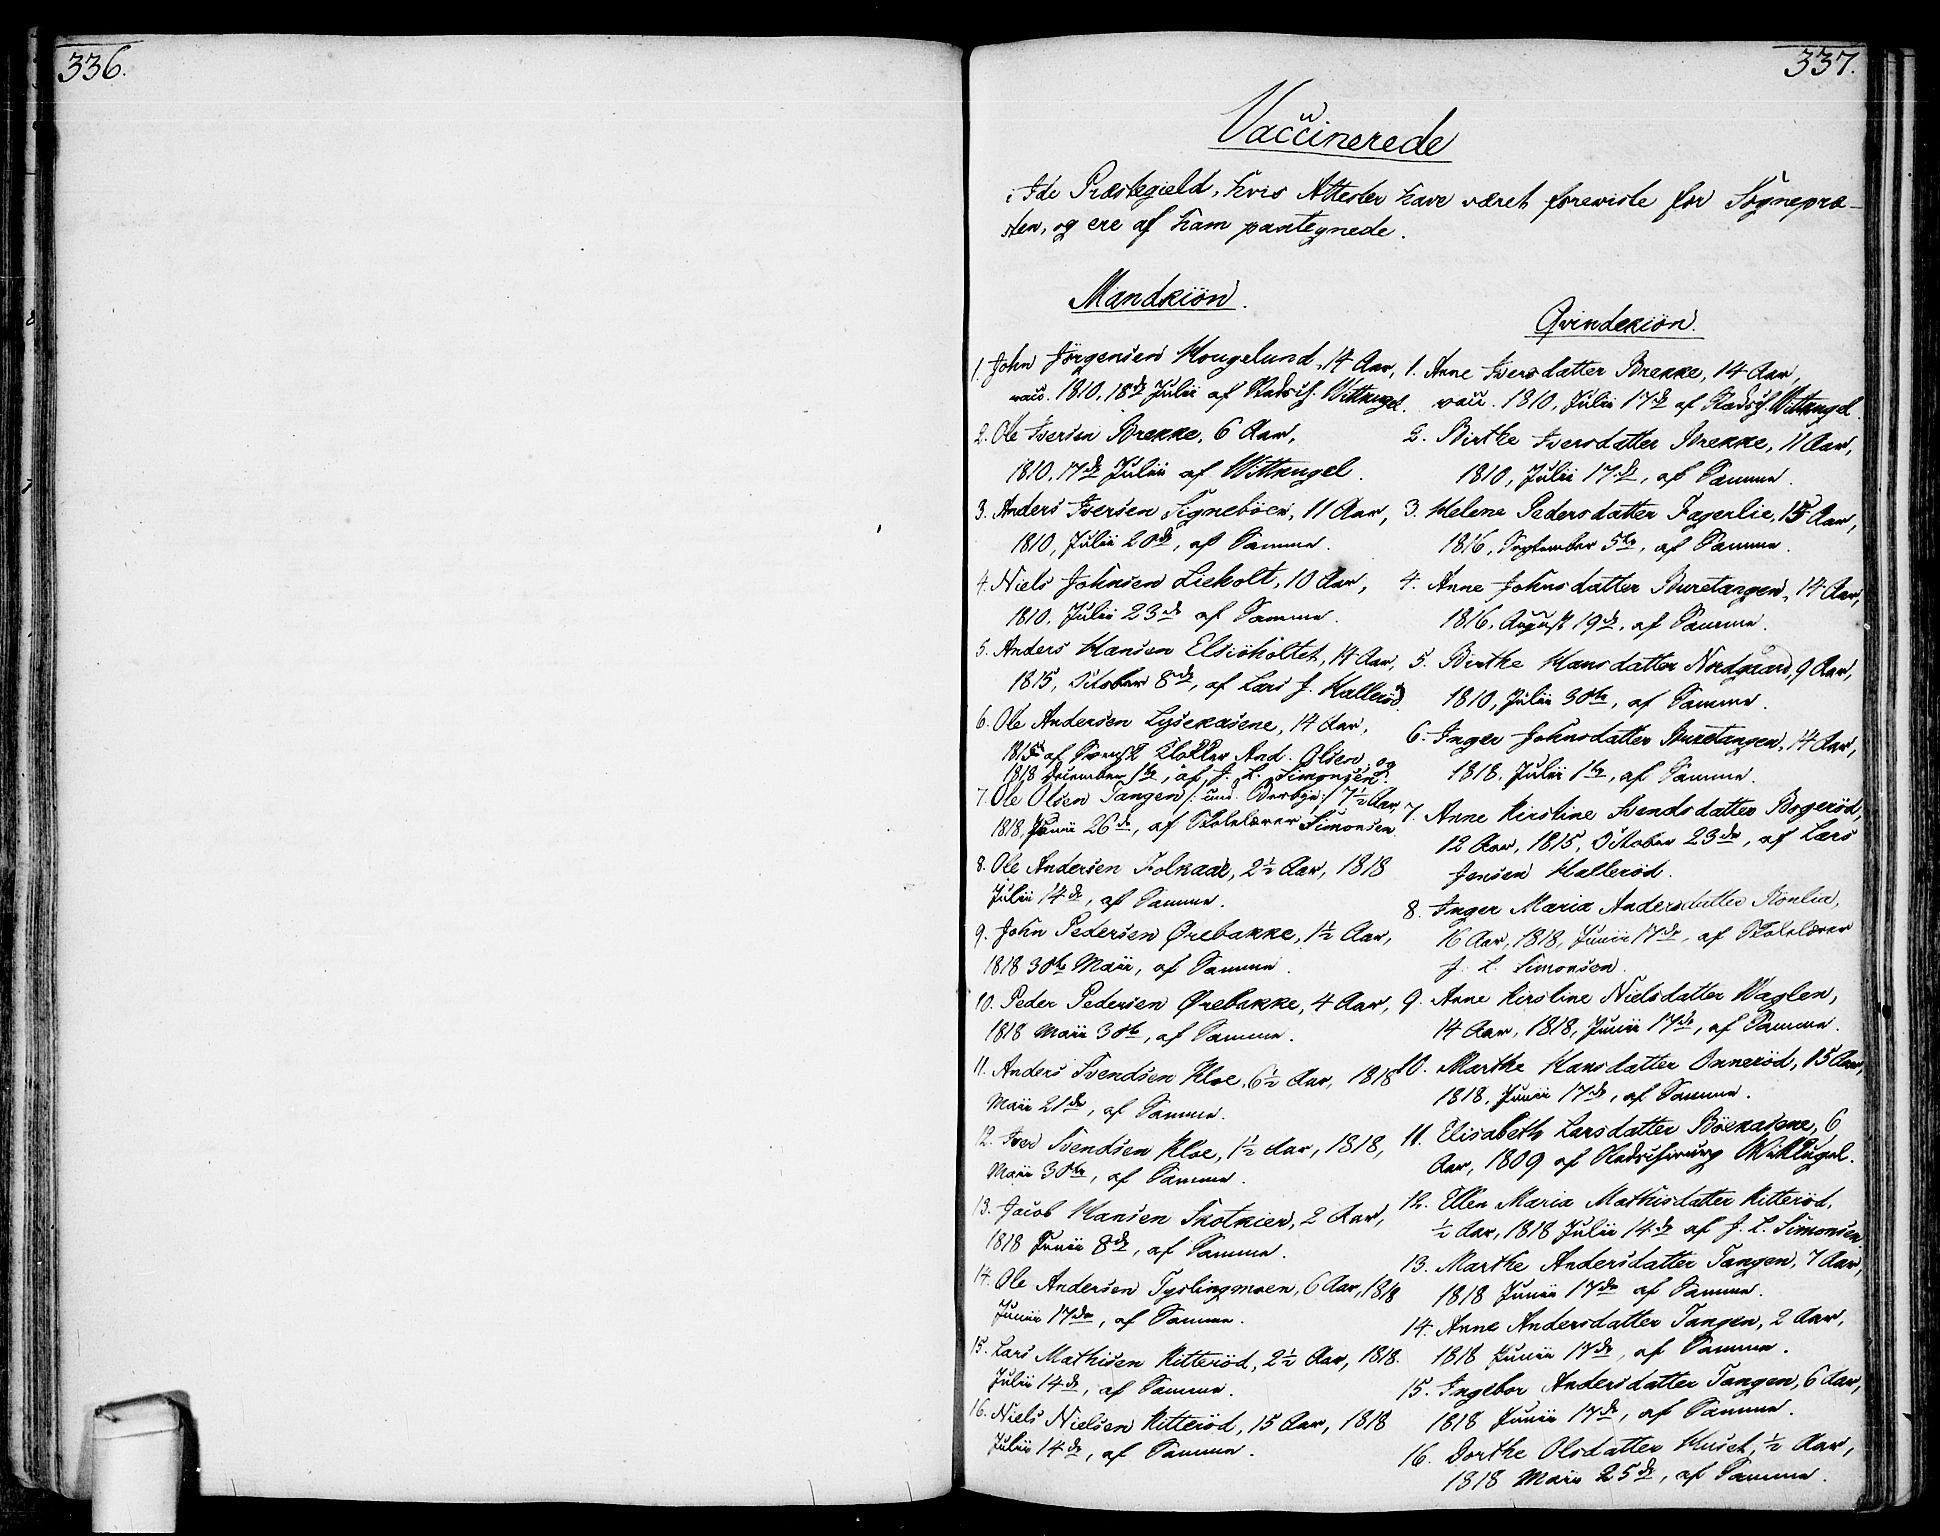 336.
337.
Vaccinerede
i Ide Præstegield, hvis Attester have været foreviste for Sognepræ-
sten, og ere af ham paategnede.
Mandkiön.
1. John Jörgensen Kougelund, 14 Aar,
vacc. 1810, 18de Julii af Radsch. Wittnugel.
2. Ole Iversen Brekke, 6 Aar,
1810, 17de Julii af Wittnugel.
3. Anders Iversen Signeböen, 11 Aar,
1810, Julii 20de, af Samme.
4. Niels Johnsen Lieholt, 10 Aar,
1810, Julii 23de af Samme.
5. Anders Hansen Elsisholtet, 14 Aar,
1815, October 8de, af Lars J. Halleröd.
6. Ole Andersen Lysekasene, 14 Aar,
1815 af Svensk Klokker And. Olsen, og
1818 December 1te, af J. L. Simonsen.
7. Ole Olsen Tangen /: und. Berbye :/ 7½ Aar
1818, Junii 26de, af Skolelærer Simonsen.
8. Ole Andersen Folkaae, 2½ Aar, 1818
Julii 14de, af Samme.
9. John Pedersen Ørebakke, 1½ Aar,
1818 30te Maii, af Samme.
10. Peder Pedersen Ørebakke, 4 Aar,
1818 Maii 30te, af Samme.
11. Anders Svendsen Kloe, 6½ Aar, 1818
Maii 21de, af Samme.
12. Iver Svendsen Kloe, 1½ Aar, 1818,
Maii 30te, af Samme.
13. Jacob Hansen Skotkier, 2 Aar,
1818 Junii 8de, af Samme.
14. Ole Andersen Tyslingmoen, 6 Aar, 1818
Junii 17de, af Samme.
15. Lars Mathisen Kitteröd, 2½ Aar, 1818.
Julii 14de, af Samme.
16. Niels Nielsen Kitteröd, 15 Aar, 1818
Julii 14de, af Samme.
Qvindekiön.
1. Anne Iversdatter Brekke, 14 Aar,
vacc. 1810, Julii 17de af Radsch. Wittnugel.
2. Birthe Iversdatter Brekke, 11 Aar,
1810, Julii 17de, af Samme.
3. Helene Pedersdatter Fagerlie, 15 Aar,
1816, September 5te, af Samme.
4. Anne Johnsdatter Buretangen, 14 Aar,
1816, August 19de, af Samme.
5. Birthe Hansdatter Nordgaard, 9 Aar,
1810, Julii 30te, af Samme.
6. Inger Johnsdatter Buretangen, 14 Aar,
1818, Julii 1te, af Samme.
7. Anne Kirstine Svendsdatter Bogeröd,
12 Aar, 1815, October 23de, af Lars
Jensen Halleröd.
8. Inger Maria Andersdatter Rönlia,
16 Aar, 1818, Junii 17de, af Skolelærer
J. L. Simonsen.
9. Anne Kirstine Nielsdatter Waglen,
14 Aar, 1818, Junii 17de, af Samme.
10. Marthe Hansdatter Onneröd, 15 Aar,
1818, Junii 17de, af Samme.
11. Elisabeth Larsdatter Böekasene, 6
Aar, 1809 af
12. Ellen Maria Mathisdatter Kitteröd,
½ Aar, 1818 Julii 14de af J. L. Simonsen
13. Marthe Andersdatter Tangen, 7 Aar,
1818 Junii 17de af Samme.
14. Anne Andersdatter Tangen, 2 Aar,
1818 Junii 17de, af Samme.
15. Ingebor Andersdatter Tangen, 6 Aar,
1818 Junii 17de, af Samme.
16. Dorthe Olsdatter Huset, ½ Aar,
1818 Maii 25de, af Samme.